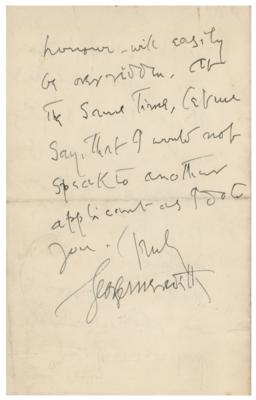 honour - will easily
be overridden. At
the same time, let me
say, that I would not
speak to another
applicant as I do to
you. Truly
George Meredith